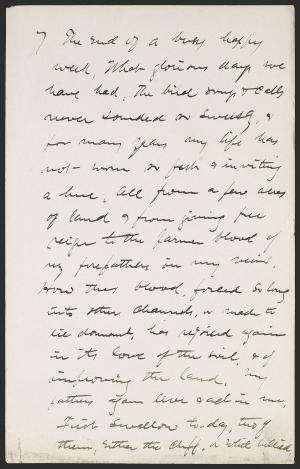 7 The end of a busy happy
week. What glorious days we
have had. The bird songs & calls
never sounded so sweetly, &
for many years my life has
not worn so fresh & inviting
a hue. All from a few acres
of land & from giving free
reign to the farmer blood of
my forefathers in my veins.
How this blood, forced so long
into other channels, or made to
lie dormant, has rejoiced again
in its love of the soil, & of
improving the land. My
fathers again live & act in me.
First Swallow to-day, two of
them, either the Cliff, or white bellied